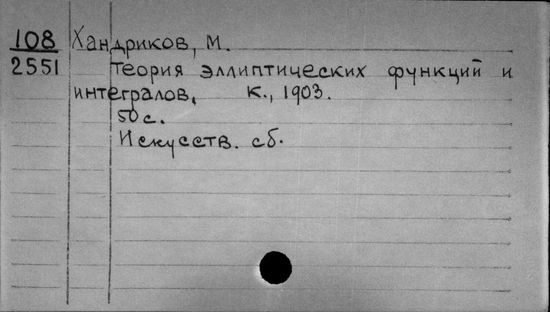 108 Хандриков, М.
2551 Теория эллиптических функций и
интегралов. К., 1903.
50 с.
Искусств. сб.